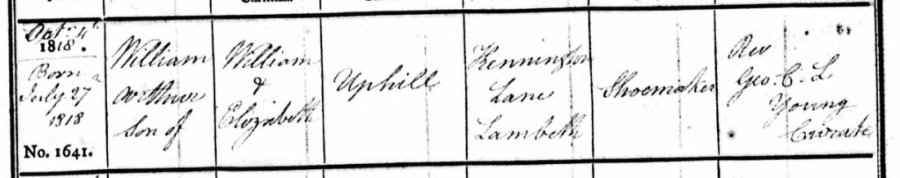 Octr 4th
1818.
Born
July 27
1818
No. 1641.
William
Arthur
Son of
William
&
Elizabeth
Uphill
Kennington
Lane
Lambeth
Shoemaker
Rev
Geo. C. L
Young
Curate